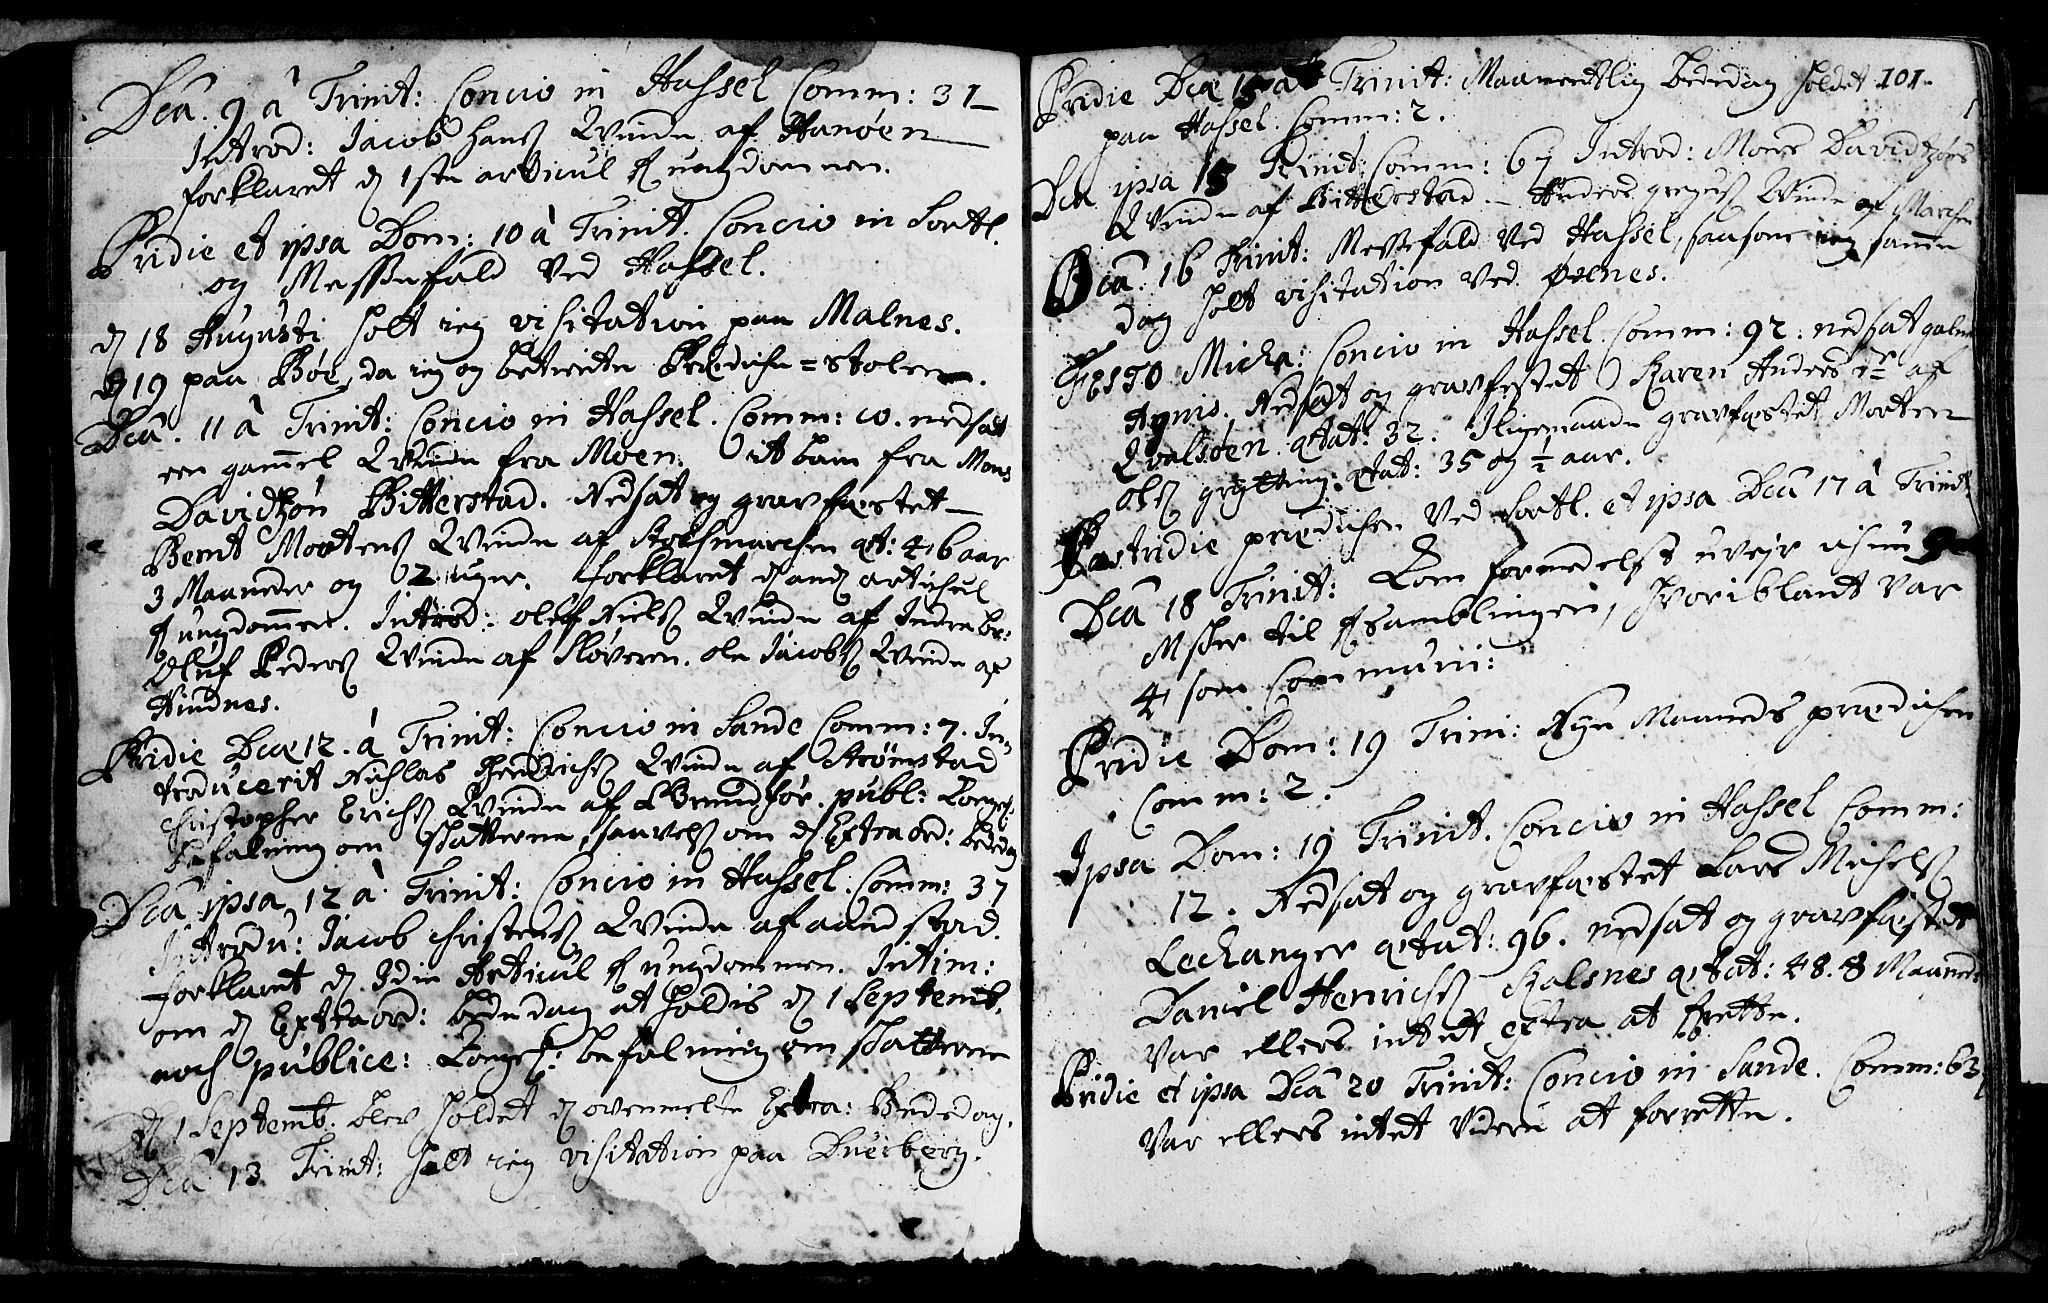 Dca. 9 à Trinit: Concio in Hassel Comm: 31
Introd: Jacob Hans Qvinde af Hanøen
forklaret d 1ste articul f ungdommen.
Pridie et ipsa Dom: 10 à Trinit. Concio in Sortl.
og Messefald ved Hassel.
d 18 Augusti holt ieg visitation paa Malnes.
d 19 paa Bøe, da ieg og betiente Predicke=stolen.
Dca. 11 à Trinit: Concio in Hassel. Comm: 10. nedsat
een gammel Qvinde fra Moen. it barn fra Mons
Davidtzøn Bitterstad. Nedsat og gravfæstet
Bernt Mortens Qvinde af Stochmarchen æt: 46 aar
3 Maaneder og 2 uger. forklaret d and artichel
f ungdommen. Introd: oluf Niels Qvinde af Indre
Oluf Peders Qvinde af Sløveren. ole Jacobs Qvinde af
Hindnes.
Pridie Dcæ 12. à Trinit: Concio in Sande Comm: 7. In=
troducerit Nichlas Hendrichs Qvinde af Strømstad
Christopher Erichs Qvinde af Grundfør. publ: Kongel:
befalning om skatterne, saavels om d Extraord: Bededag
Dca ipsa 12 à Trinit: Concio in Hassel. Comm: 37
Introdu: Jacob Christens Qvinde af aandstad.
forklaret d 3die Articul f ungdommen. Intim:
om d Extraord: bededag at holdis d 1 Septemb.
noch publice: Kongel: befalning om skatterne
d 1 Septemb. blev holdet d ovenmelte Extra: Bededag.
Dca 13 Trinit: holt ieg visitation paa Duerberg.
Pridie Dcæ 15 à Trinit: Maanedtlig Bededag holdet 101.
paa Hassel. Comm: 2.
Dca ipsa 15 Trinit: Comm: 67 Introd: Mons Davidtzøns
Qvinde af Bitterstad. Anders Qvinde af Marchen
Dca. 16 Trinit: Messefald ved Hassel, saasom ieg samme
dag holt visitation ved Øxnes.
Festo Micha: Concio in Hassel. Comm: 92. nedsat
Nedsat og gravfestet Karen Anders dr af
Qvalsøen ætat: 32. Iligemaade gravfæstet Morten
ols grytting ætat: 35 og ½ aar.
Postridie prædichen ved Sortl. et ipsa Dca 17 à Trinit
Dca 18 Trinit: Kom formedelst uvejr ichun
Msker til fsamblingen, hvoriblant var
4 som Communi:
Pridie Dom: 19 Trini: Nye Maaneds prædichen
Comm: 2.
Ipsa Dom: 19 Trinit. Concio in Hassel Comm:
12. Nedsat og gravfæstet Lars Michels
Lechanger ætat: 96. nedsat og gravfæstet
Daniel Henrichs Kalsnes ætat: 48. 8 Maaned:
var ellers intet extra at fbrette.
Pridie et ipsa Dca 20 Trinit: Concio in Sande. Comm: 63
var ellers intet videre at forrette.